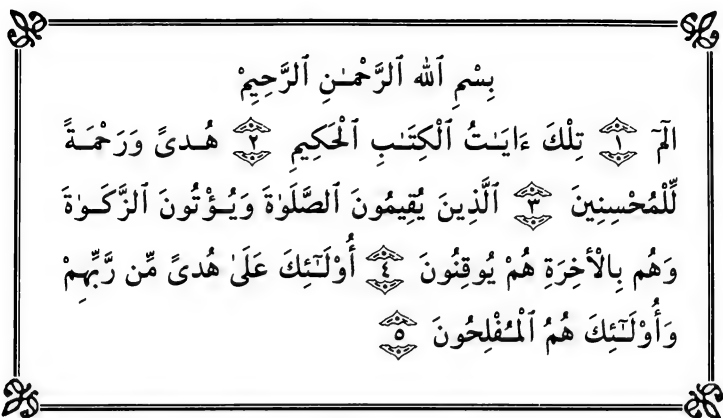 بِسْمِ ٱللَّهِ ٱلرَّحْمَـٰنِ ٱلرَّحِيمِ
الٓمٓ ﴿١﴾ تِلْكَ ءَايَـٰتُ ٱلْكِتَـٰبِ ٱلْحَكِيمِ ﴿٢﴾ هُـدىً وَرَحْمَـةً
لِّلْمُحْسِنِينَ ﴿٣﴾ ٱلَّذِينَ يُقِيمُونَ ٱلصَّلَوٰةَ وَيُـؤْتُونَ ٱلزَّكَـوٰةَ
وَهُم بِٱلْأَخِرَةِ هُمْ يُوقِنُونَ ﴿٤﴾ أُوْلَـٰٓئِكَ عَلَىٰ هُدىً مِّن رَّبِّهِمْ
وَأُوْلَـٰٓئِكَ هُمُ ٱلْمُفْلِحُونَ ﴿٥﴾